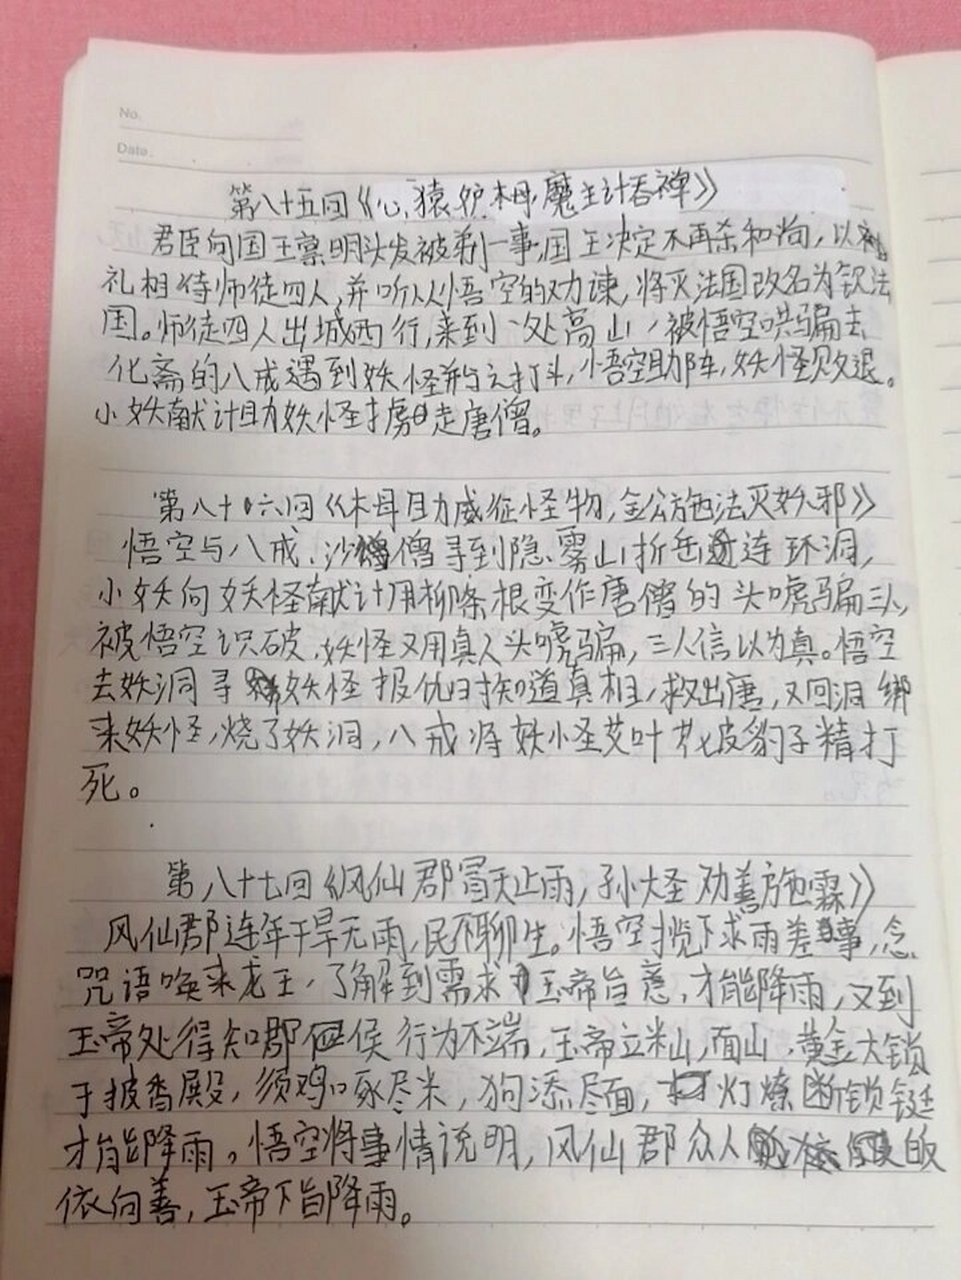 No.
Date.
第八十五回《心猿妒木母 魔主计吞禅》
君臣向国王禀明头发被剃一事,国王决定不再杀和尚，以
礼相待师徒四人,并听从悟空的劝谏,将灭法国改名为钦法
国。师徒四人出城西行,来到一处高山,被悟空哄骗去
化斋的八戒遇到妖怪并与之打斗,悟空助阵,妖怪败退。
小妖献计助妖怪掳走唐僧。
第八十六回《木母助威征怪物,金公施法灭妖邪》
悟空与八戒、沙僧寻到隐雾山折岳连环洞,
小妖向妖怪献计用柳条根变作唐僧的头唬骗三人,
被悟空识破,妖怪又用真人头唬骗,三人信以为真。悟空
去妖洞寻妖怪报仇时按知道真相,救出唐,又回洞绑
来妖怪,烧了妖洞,八戒将妖怪艾叶花皮豹子精打
死。
第八十七回《风仙郡冒天止雨,孙大圣劝善施霖》
风仙郡连年干旱无雨,民不聊生。悟空揽下求雨差事,念
咒语唤来龙王,了解到需求玉帝旨意,才能降雨,又到
玉帝处得知郡侯行为不端,玉帝立米山,面山,黄金大锁
于披香殿,须鸡啄尽米,狗添尽面,灯燎断锁铤
才能降雨。悟空将事情说明,风仙郡众人皈
依向善,玉帝下旨降雨。